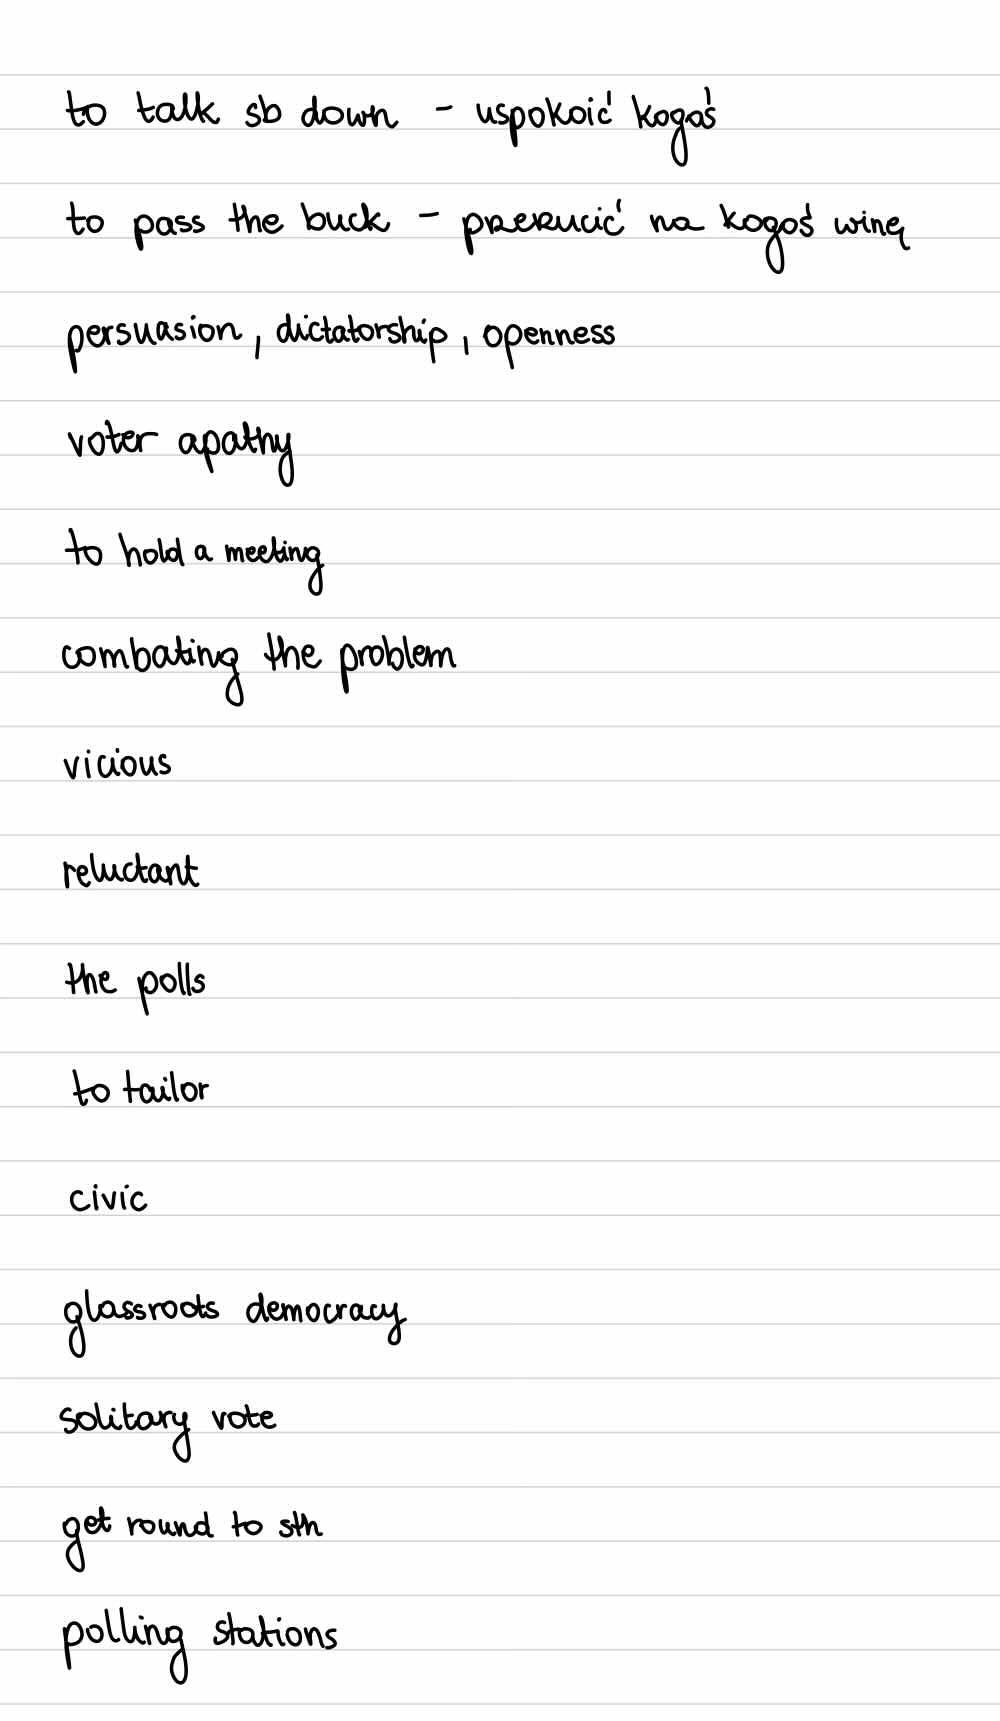 to talk sb down - uspokoić kogoś
to pass the buck - przerzucić na kogoś winę
persuasion, dictatorship, openness
voter apathy
to hold a meeting
combating the problem
vicious
reluctant
the polls
to tailor
civic
glassroots democracy
solitary vote
get round to sth
polling stations